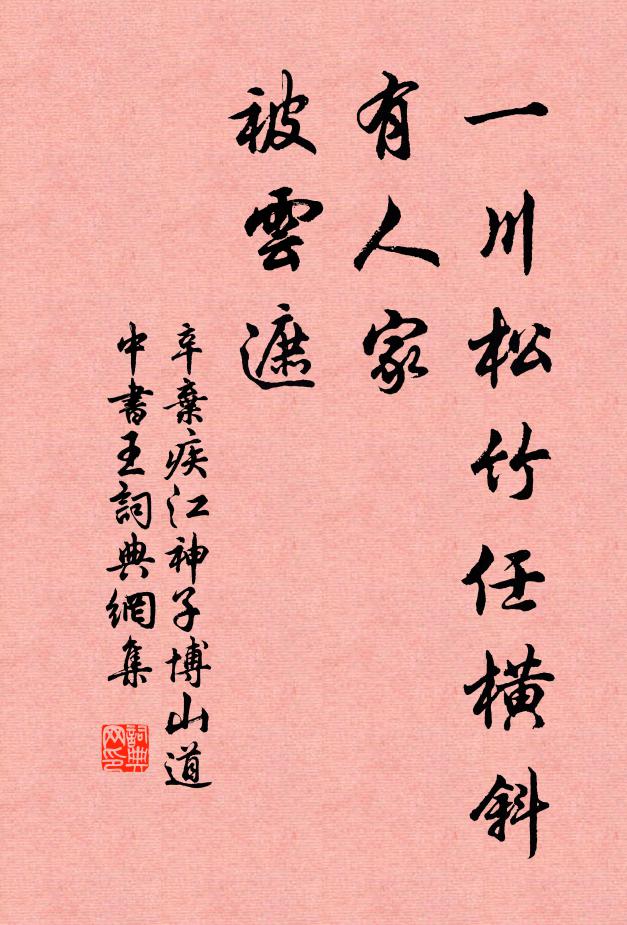 一川松竹任橫斜
有人家
被雲遮
辛棄疾江神子博山道
中書王詞典網集
詞典
网印